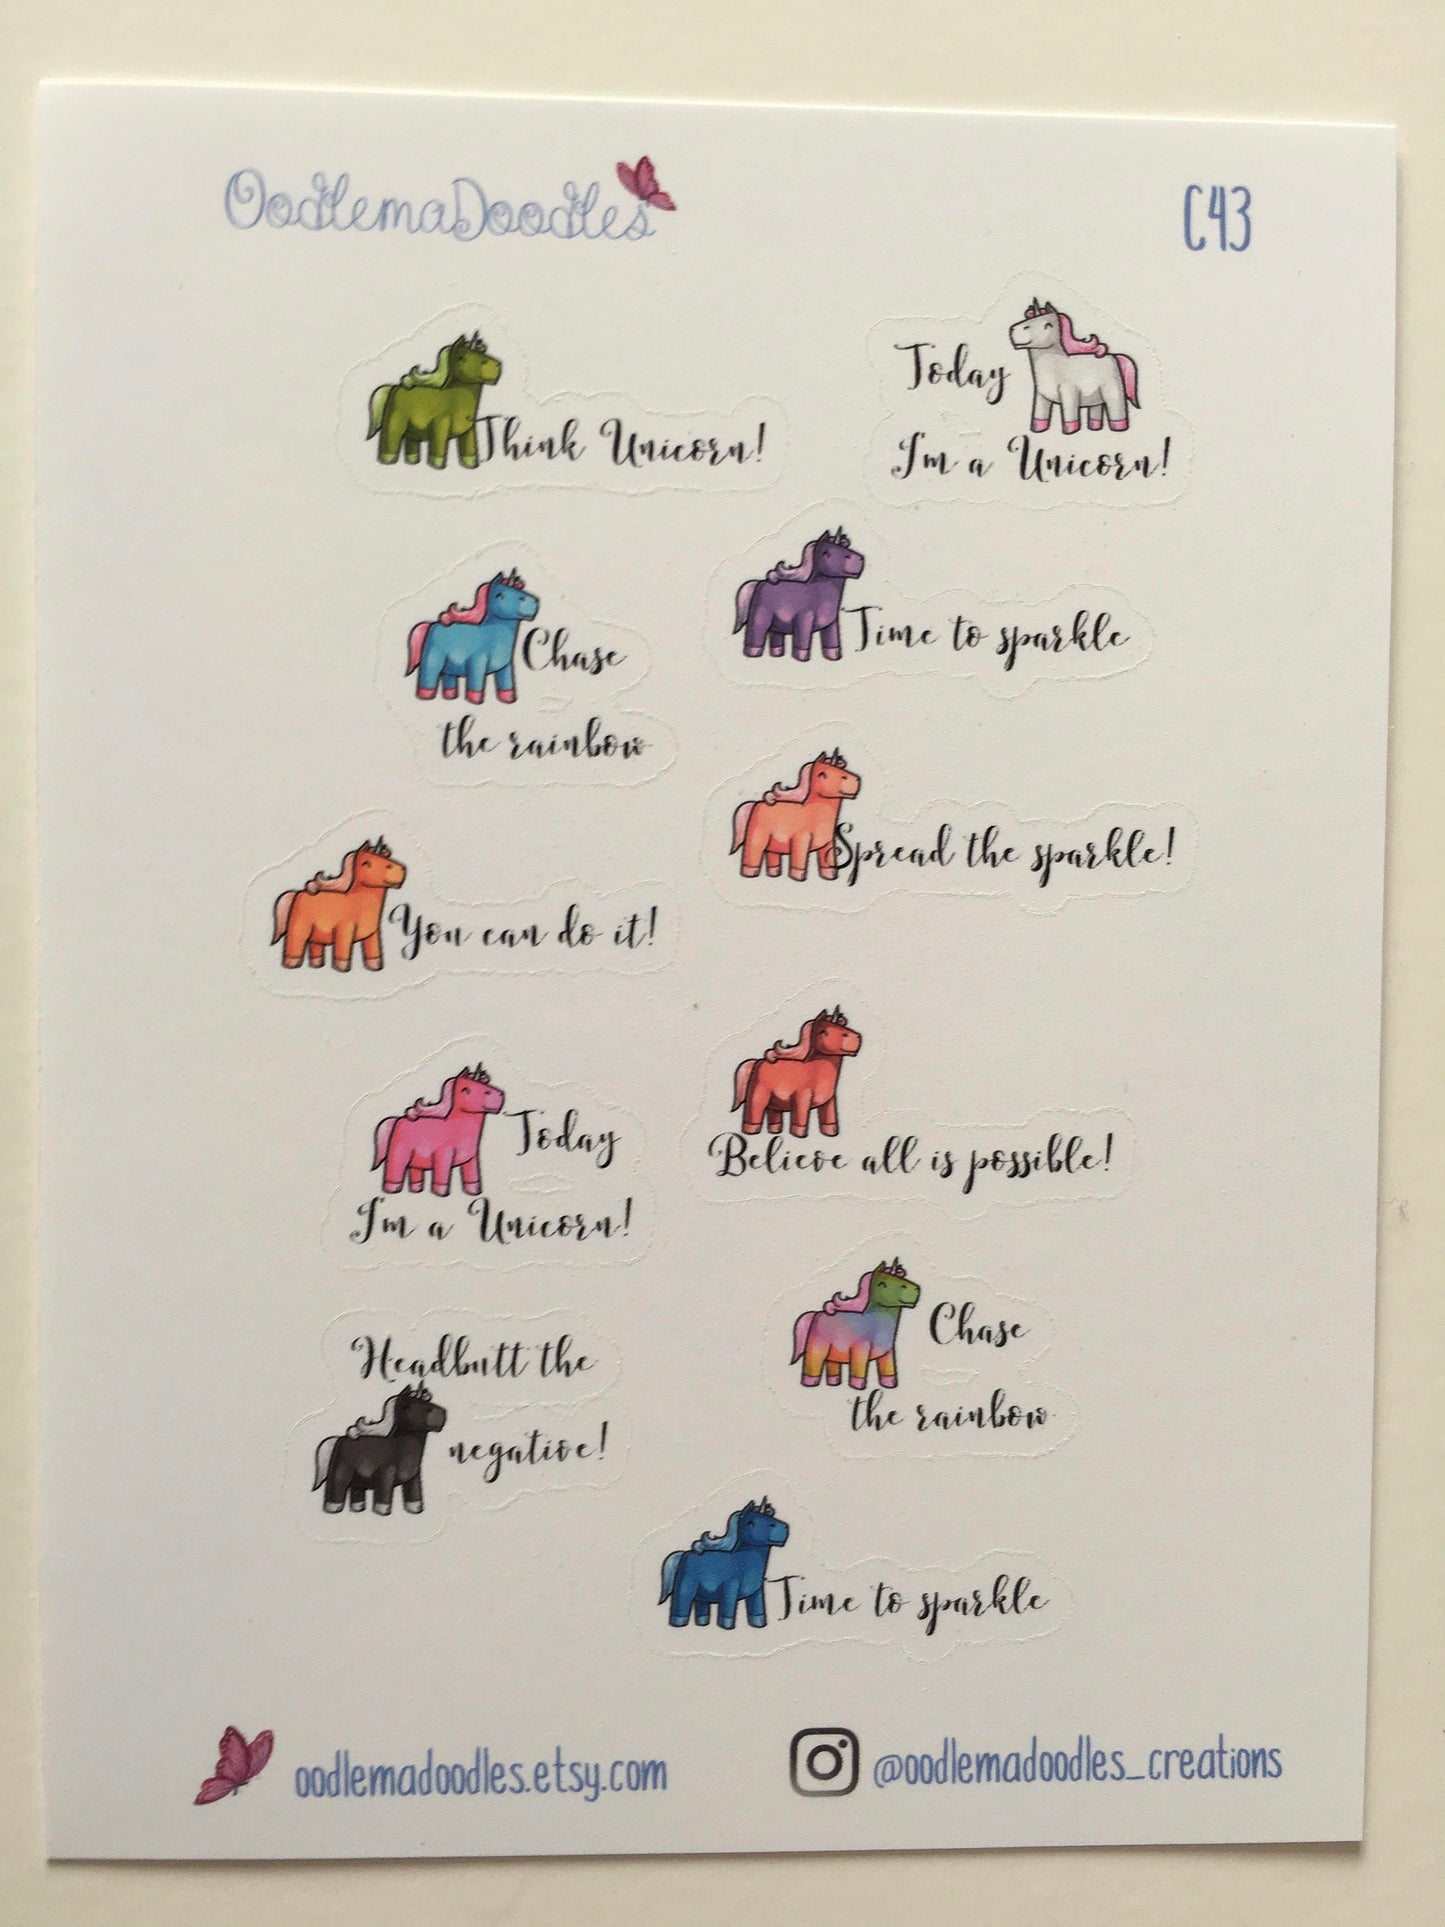 OodlemaDoodles
C43
Think Unicorn!
Today
I'm a Unicorn!
Chase
the rainbow
Time to sparkle
Spread the sparkle!
You can do it!
Believe all is possible!
Today
I'm a Unicorn!
Chase
the rainbow
Headbutt the
negative!
Time to sparkle
oodlemadoodles.etsy.com
@oodlemadoodles_creations